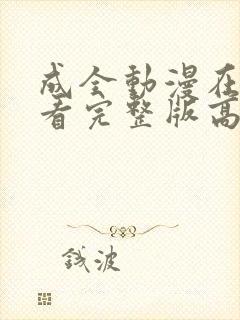 成全動漫在
看完整版高
钱波